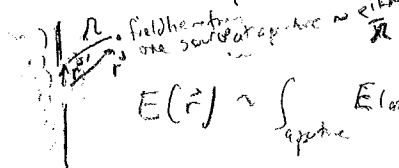 R field here from
r' r one source at aperture ~ e^{ikR}/R
E(r⃗) ~ ∫_{aperture} E(